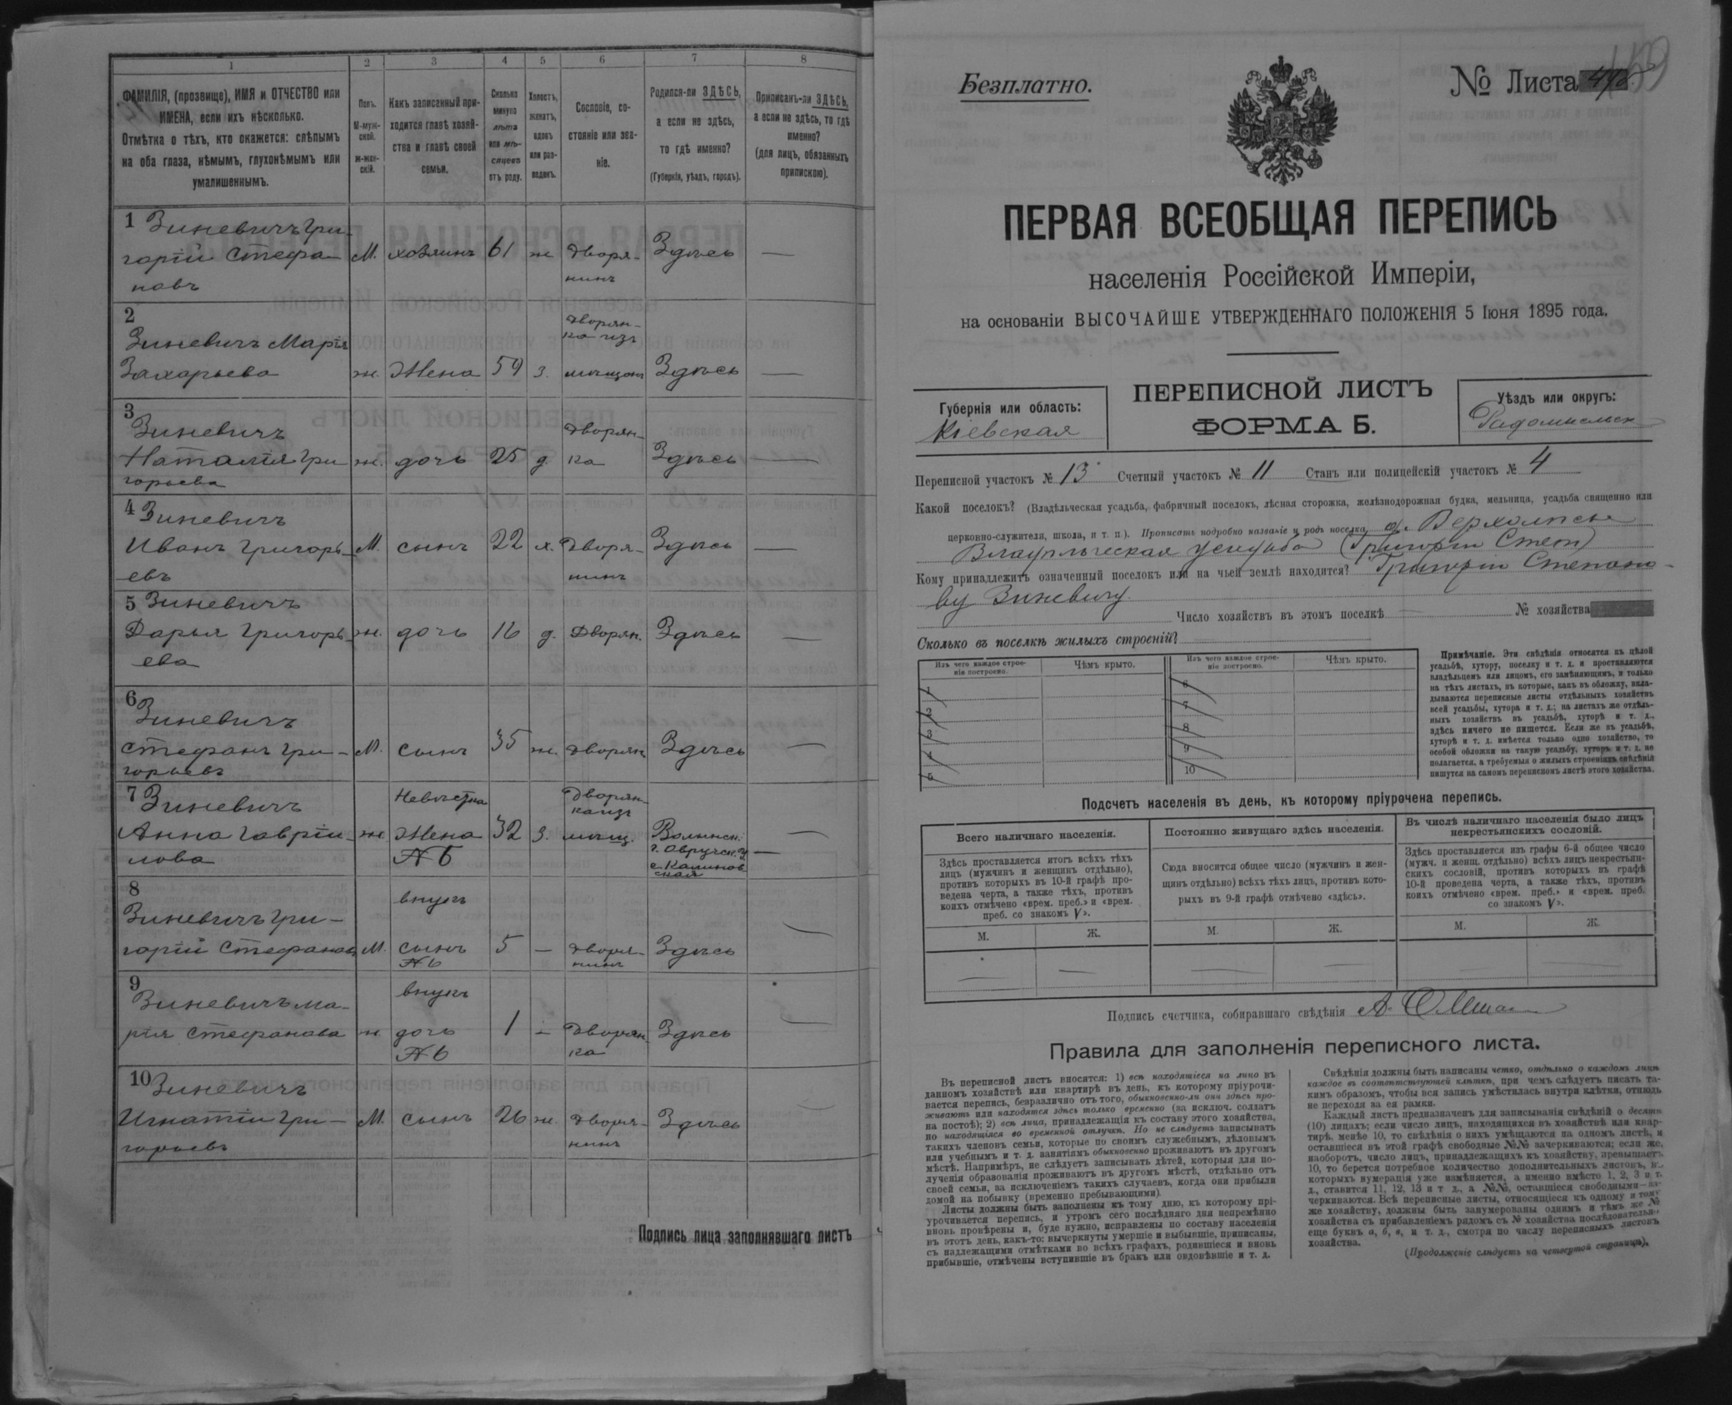 1 2 3 4 5 6 7 8
ФАМИЛІЯ, (прозвище), ИМЯ и ОТЧЕСТВО или
ИМЕНА, если ихъ нѣсколько.
Отмѣтка о тѣхъ, кто окажется: слѣпымъ
на оба глаза, нѣмымъ, глухонѣмымъ или
умалишеннымъ.
Полъ.
М-муж-
ской.
Ж-жен-
скій.
Какъ записанный при-
ходится главѣ хозяй-
ства и главѣ своей
семьи.
Сколько
минуло
лѣтъ
или мѣ-
сяцевъ
отъ роду.
Холостъ,
женатъ,
вдовъ
или раз-
веденъ.
Сословіе, со-
стояніе или зва-
ніе.
Родился-ли ЗДѢСЬ,
а если не здѣсь,
то гдѣ именно?
(Губернія, уѣздъ, городъ).
Приписанъ-ли ЗДѢСЬ,
а если не здѣсь, то гдѣ
именно?
(для лицъ, обязанныхъ
припискою).
1 Зиневичъ Гри-
горій Стефа- М. хозяинъ 61 ж Дворя- Здѣсь —
новъ нинъ
2 Дворян-
Зиневичъ Марія ка изъ
Захарьева ж. Жена 59 з. мѣщанъ Здѣсь —
3 Зиневичъ Дворян-
Наталія Гри ж. дочь 25 д. ка Здѣсь —
горьева
4 Зиневичъ
Иванъ Григорь- М. сынъ 22 х. Дворя- Здѣсь —
евъ нинъ
5 Зиневичъ
Дарья Григорь- ж. дочь 16 д. Дворян. Здѣсь —
ева
6 Зиневичъ
Стефанъ Гри- М. сынъ 35 ж. Дворян. Здѣсь —
горьевъ
7 Зиневичъ Невѣстка Дворян-
ка изъ
Анна Гавріи- ж. Жена 32 з. мѣщ. Волынск.
лова № 6 г. Овручск. у. —
с. Калинов
ская
8 внукъ
Зиневичъ Гри-
горій Стефановъ М. сынъ 5 — Дворя- Здѣсь —
№ 6 нинъ
9 внукъ
Зиневичъ Ма-
рія Стефанова ж дочь 1 — Дворян Здѣсь —
№ 6 ка
10 Зиневичъ
Игнатій Гри- М. сынъ 26 ж. Дворя- Здѣсь
горьевъ нинъ
Подпись лица заполнявшаго листъ
Безплатно.
№ Листа
ПЕРВАЯ ВСЕОБЩАЯ ПЕРЕПИСЬ
населенія Россійской Имперіи,
на основаніи ВЫСОЧАЙШЕ УТВЕРЖДЕННАГО ПОЛОЖЕНІЯ 5 Іюня 1895 года.
Губернія или область:
Кіевская
ПЕРЕПИСНОЙ ЛИСТЪ
ФОРМА Б.
Уѣздъ или округъ:
Радомысльск
Переписной участокъ № 13 Счетный участокъ № 11 Станъ или полицейскій участокъ № 4
Какой поселокъ? (Владѣльческая усадьба, фабричный поселокъ, лѣсная сторожка, желѣзнодорожная будка, мельница, усадьба священно или
церковно-служителя, школа, и т. п.). Прописать подробно названіе и родъ поселка
Владѣльческая усадьба (Григорій Степ)
Кому принадлежитъ означенный поселокъ или на чьей землѣ находится? Григорію Степано-
ву Зиневичу
Число хозяйствъ въ этомъ поселкѣ — № хозяйства
Сколько въ поселкѣ жилыхъ строеній?
Изъ чего каждое строе-
ніе построено. Чѣмъ крыто. Изъ чего каждое строе-
ніе построено. Чѣмъ крыто.
1 6
2 7
3 8
4 9
5 10
Примѣчаніе. Эти свѣдѣнія относятся къ цѣлой
усадьбѣ, хутору, поселку и т. д. и проставляются
владѣльцемъ или лицомъ, его замѣняющимъ, и только
на тѣхъ листахъ, въ которые, какъ въ обложку, вкла-
дываются переписные листы отдѣльныхъ хозяйствъ
всей усадьбы, хутора и т. д.; на листахъ же отдѣль-
ныхъ хозяйствъ въ усадьбѣ, хуторѣ и т. д.,
здѣсь ничего не пишется. Если же въ усадьбѣ,
хуторѣ и т. д. имѣется только одно хозяйство, то
особой обложки на такую усадьбу, хуторъ и т. д. не
полагается, а требуемыя о жилыхъ строеніяхъ свѣдѣнія
пишутся на самомъ переписномъ листѣ этого хозяйства.
Подсчетъ населенія въ день, къ которому пріурочена перепись.
Всего наличнаго населенія.
Здѣсь проставляется итогъ всѣхъ тѣхъ
лицъ (мужчинъ и женщинъ отдѣльно),
противъ которыхъ въ 10-й графѣ про-
ведена черта, а также тѣхъ, противъ
коихъ отмѣчено «врем. преб.» и «врем.
преб. со знакомъ V».
М. Ж.
Постоянно живущаго здѣсь населенія.
Сюда вносится общее число (мужчинъ и жен-
щинъ отдѣльно) всѣхъ тѣхъ лицъ, противъ кото-
рыхъ въ 9-й графѣ отмѣчено «здѣсь».
М. Ж.
Въ числѣ наличнаго населенія было лицъ
некрестьянскихъ сословій.
Здѣсь проставляется изъ графы 6-й общее число
(мужч. и женщ. отдѣльно) всѣхъ лицъ некрестьян-
скихъ сословій, противъ которыхъ въ графѣ
10-й проведена черта, а также тѣхъ, противъ
коихъ отмѣчено «врем. преб.» и «врем. преб.
со знакомъ V».
М. Ж.
Подпись счетчика, собиравшаго свѣдѣнія
Правила для заполненія переписного листа.
Въ переписной листъ вносятся: 1) всѣ находящіеся на лицо въ
данномъ хозяйствѣ или квартирѣ въ день, къ которому пріурочи-
вается перепись, безразлично отъ того, обыкновенно-ли они здѣсь про-
живаютъ или находятся здѣсь только временно (за исключ. солдатъ
на постоѣ); 2) всѣ лица, принадлежащія къ составу этого хозяйства,
но находящіеся во временной отлучкѣ. Но не слѣдуетъ записывать
такихъ членовъ семьи, которые по своимъ служебнымъ, дѣловымъ
или учебнымъ и т. д. занятіямъ обыкновенно проживаютъ въ другомъ
мѣстѣ. Напримѣръ, не слѣдуетъ записывать дѣтей, которыя для по-
лученія образованія проживаютъ въ другомъ мѣстѣ, отдѣльно отъ
своей семьи, за исключеніемъ такихъ случаевъ, когда они прибыли
домой на побывку (временно пребывающими).
Листы должны быть заполнены къ тому дню, къ которому прі-
урочивается перепись, и утромъ сего послѣдняго дня непремѣнно
вновь провѣрены и, буде нужно, исправлены по составу населенія
въ этотъ день, какъ-то: вычеркнуты умершіе и выбывшіе, приписаны,
съ надлежащими отмѣтками во всѣхъ графахъ, родившіеся и вновь
прибывшіе, отмѣчены вступившіе въ бракъ или овдовѣвшіе и т. д.
Свѣдѣнія должны быть написаны четко, отдѣльно о каждомъ лицѣ
каждое въ соотвѣтствующей клѣткѣ, при чемъ слѣдуетъ писать та-
кимъ образомъ, чтобы вся запись умѣстилась внутри клѣтки, отнюдь
не переходя за ея рамки.
Каждый листъ предназначенъ для записыванія свѣдѣній о десяти
(10) лицахъ; если число лицъ, находящихся въ хозяйствѣ или квар-
тирѣ, менѣе 10, то свѣдѣнія о нихъ умѣщаются на одномъ листѣ, и
оставшіеся въ этой графѣ свободные №№ зачеркиваются; если же,
наоборотъ, число лицъ, принадлежащихъ къ хозяйству, превышаетъ
10, то берется потребное количество дополнительныхъ листовъ, въ
которыхъ нумерація уже измѣняется, а именно вмѣсто 1, 2, 3 и т.
д., ставится 11, 12, 13 и т. д., а №№, оставшіеся свободными—за-
черкиваются. Всѣ переписные листы, относящіеся къ одному и тому
же хозяйству, должны быть занумерованы однимъ и тѣмъ же №
хозяйства съ прибавленіемъ рядомъ съ № хозяйства послѣдовательно
еще буквъ а, б, в, и т. д., смотря по числу переписныхъ листовъ
хозяйства.
(Продолженіе слѣдуетъ на четвертой страницѣ).